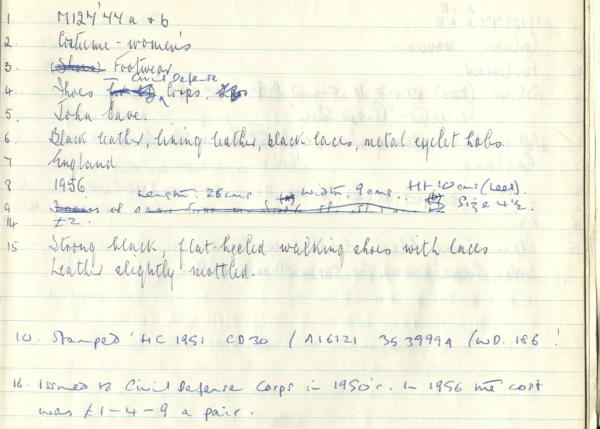 1 M127'44 a & b
2. Costume - women's
3. (Shoes) Footwear
4. Shoes Civil Defense Corps.
5. John Cave.
6. Black leather, lining leather, black laces, metal eyelet holes
7 England
8 1956
9 Length. 26cms width. 9cms. Ht. 10cms (heel). Size 4½.
14 £2.
15 Strong black, flat-heeled walking shoes with laces
Leather slightly mottled.
10. Stamped 'HC 1951 CD30 / A16121 353999A / WD. 186 !
16. Issued to Civil Defense Corps in 1950's. In 1956 the cost
was £1-4-9 a pair.